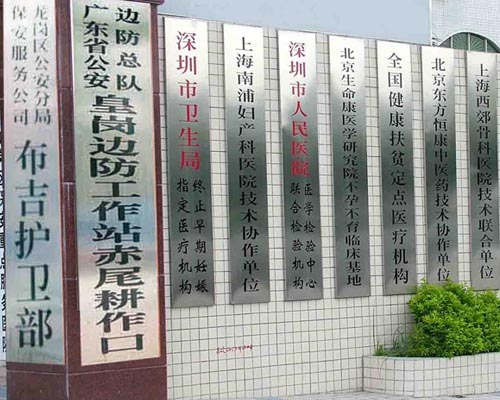 龙岗区公安分局
保安服务公司
布吉护卫部
边防总队
广东省公安
皇岗边防工作站赤尾耕作口
深圳市卫生局
终止早期妊娠
指定医疗机构
上海南浦妇产科医院技术协作单位
深圳市人民医院
医学检验中心
联合检验机构
北京生命康医学研究院不孕不育临床基地
全国健康扶贫定点医疗机构
北京东方恒康中医药技术协作单位
上海西郊骨科医院技术联合单位